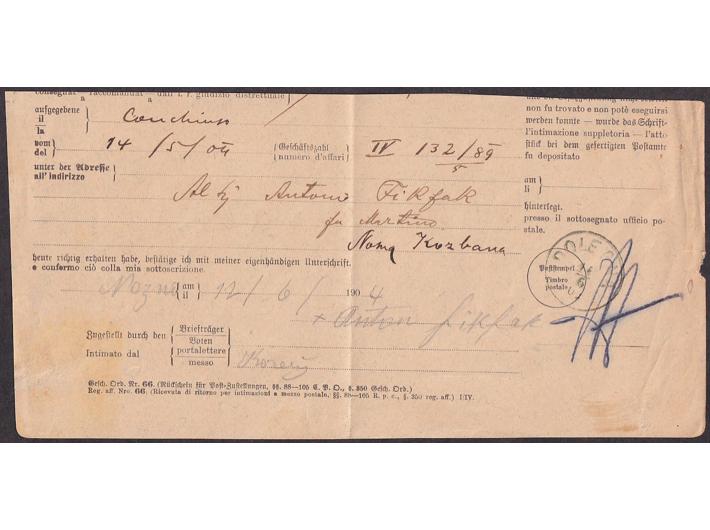 raccomandat a dall'i. r. giudizio distrettuale
aufgegebene
il
la
vom
del
14/5/04
Geschäftszahl
numero d'affari
IV 132/89
5
unter der Adresse
all'indirizzo
Antonio Fikfak
fu Martino
Kozbana
heute richtig erhalten habe, bestätige ich mit meiner eigenhändigen Unterschrift.
e confermo ciò colla mia sottoscrizione.
am
il
12/6 1904
+ Anton Fikfak
Zugestellt durch den
Intimato dal
Briefträger
Boten
portalettere
messo
Gesch. Ord. Nr. 66. (Rückschein für Post-Zustellungen, §§. 88—105 C. P. O., §. 350 Gesch. Ord.)
Reg. aff. Nro. 66. (Ricevuta di ritorno per intimazioni a mezzo postale, §§. 88—105 R. p. c., §. 350 reg. aff.) I/IV.
non fu trovato e non potè eseguirsi
werden konnte — wurde das Schrift-
l'intimazione suppletoria — l'atto
stück bei dem gefertigten Postamte
fu depositato
am
li
hinterlegt.
presso il sottosegnato ufficio po-
stale.
Poststempel
Timbro
postale